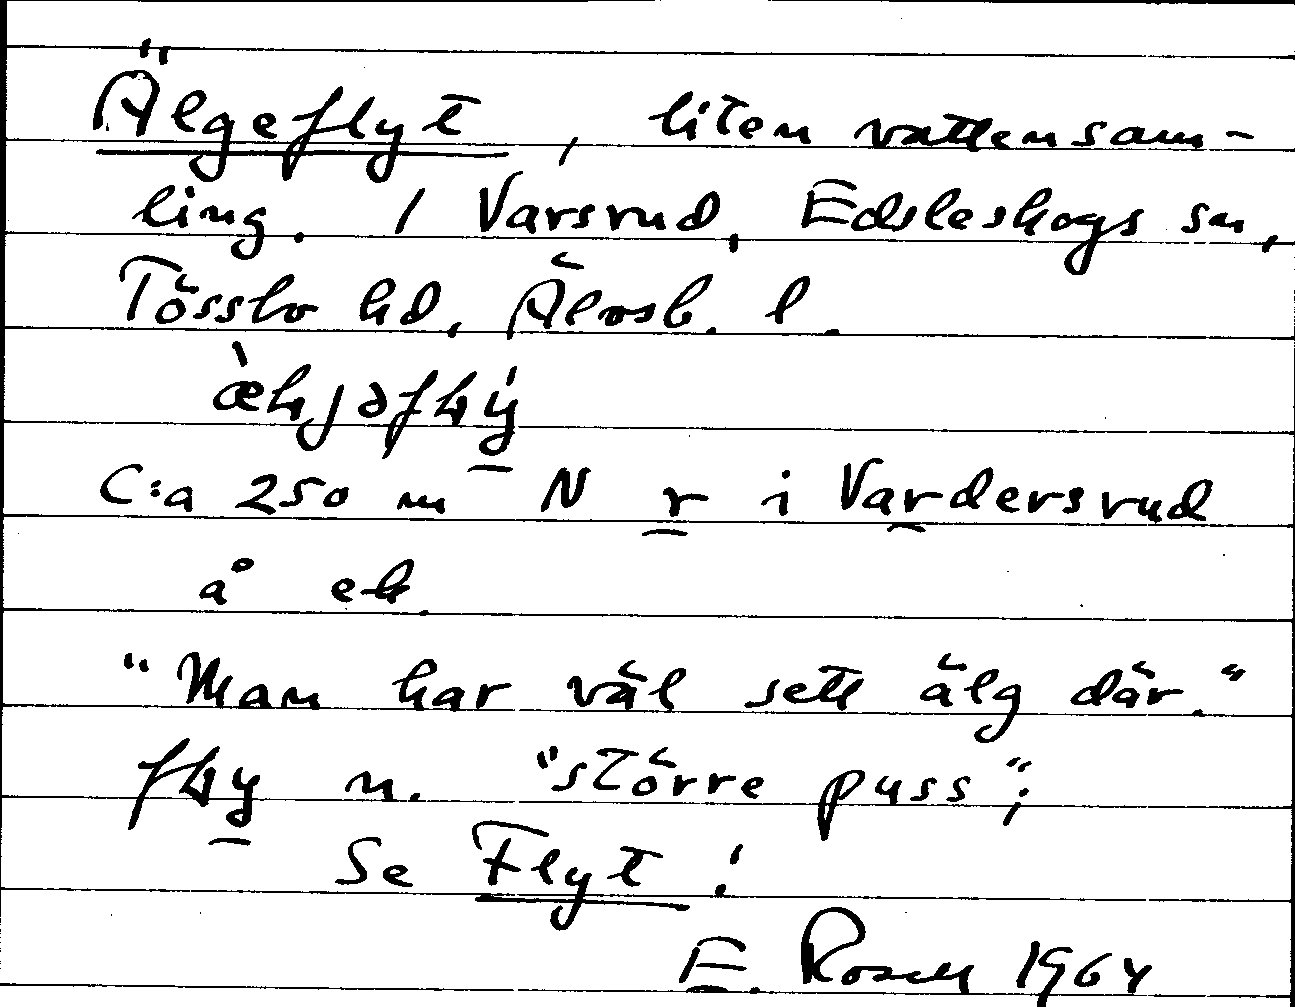 Älgeflyt, liten vattensam-
ling. I Varsrud, Edsleskogs sn,
Tössbo hd, Älvsb. l.
C:a 250 m N r i Vardersrud
å ek.
"Man har väl sett älg där."
n. "större puss";
Se Flyt!
E. Rosell 1964